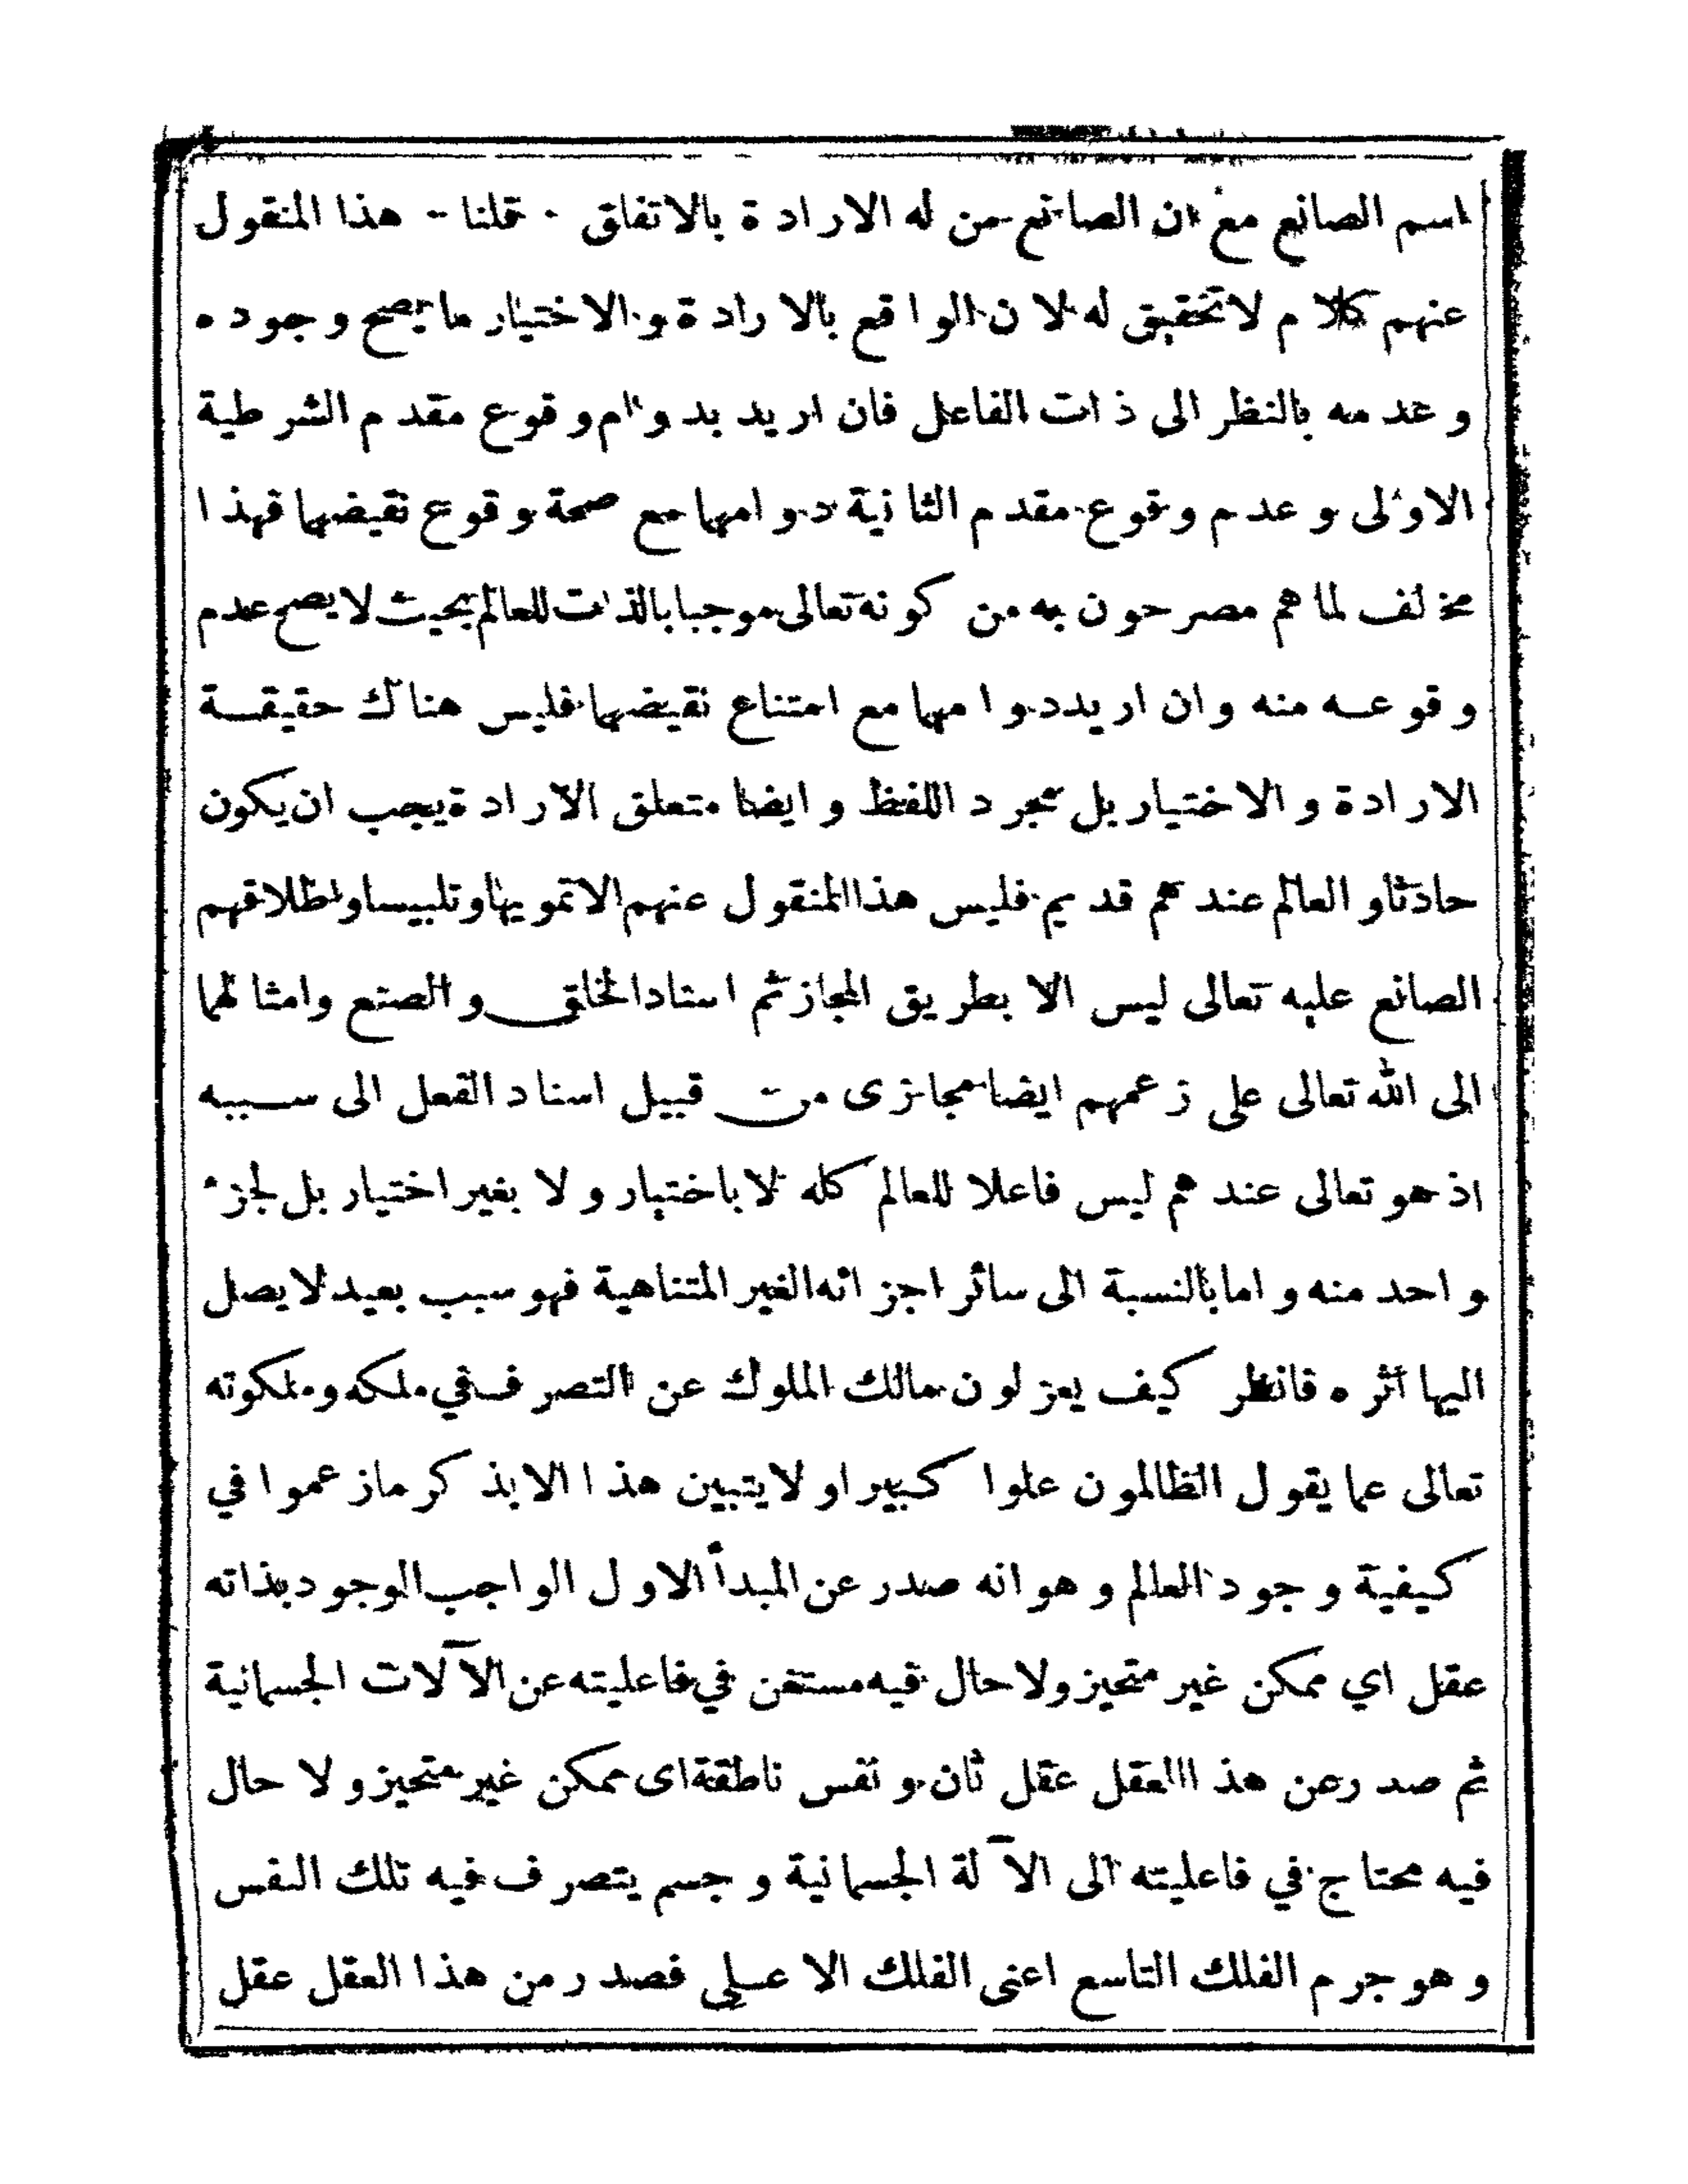 اسم الصانع مع ان الصانع من له الارادة بالاتفاق · قلنا - هذا المنقول
عنهم كلام لا تحقيق له لان الواقع بالارادة والاختيار ما يصح وجوده
وعدمه بالنظر الى ذات الفاعل فان اريد بدوام وقوع مقدم الشرطية
الاولى وعدم وقوع مقدم الثانية دوامهما مع صحة وقوع نقيضهما فهذا
مخالف لما هم مصرحون به من كونه تعالى موجبا بالذات للعالم بحيث لا يصح عدم
وقوعه منه وان اريد دوامهما مع امتناع نقيضهما فليس هناك حقيقة
الارادة والاختيار بل مجرد اللفظ وايضا متعلق الارادة يجب ان يكون
حادثا والعالم عندهم قديم فليس هذا المنقول عنهم الا تمويها وتلبيسا واطلاقهم
الصانع عليه تعالى ليس الا بطريق المجاز ثم اسناد الخلق والصنع وامثالهما
الى الله تعالى على زعمهم ايضا مجازى من قبيل اسناد الفعل الى سببه
اذ هو تعالى عندهم ليس فاعلا للعالم كله لا باختيار ولا بغير اختيار بل لجزء
واحد منه واما بالنسبة الى سائر اجزائه الغير المتناهية فهو سبب بعيد لا يصل
اليها اثره فانظر كيف يعزلون مالك الملوك عن التصرف في ملكه وملكوته
تعالى عما يقول الظالمون علوا كبيرا ولا يتبين هذا الا بذكر ما زعموا في
كيفية وجود العالم وهو انه صدر عن المبدأ الاول الواجب الوجود بذاته
عقل اي ممكن غير متحيز ولا حال فيه مستغن في فاعليته عن الآلات الجسمانية
ثم صدر عن هذا العقل عقل ثان و نفس ناطقة اى ممكن غير متحيز ولا حال
فيه محتاج في فاعليته الى الآلة الجسمانية وجسم يتصرف فيه تلك النفس
وهو جرم الفلك التاسع اعنى الفلك الاعلى فصدر من هذا العقل عقل